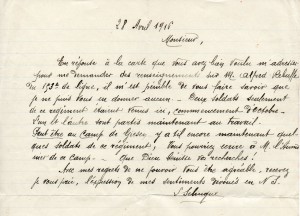 28 Avril 1916
Monsieur,
En réponse à la carte que vous avez bien voulu m'adresser
pour me demander des renseignements sur M. Alfred
du 153e de ligne, il m'est pénible de vous faire savoir que
je ne puis vous en donner aucun. - Cinq soldats seulement
de ce régiment étaient venus ici, commencement d'octobre.
Tous les autres sont partis maintenant au travail.
Peut être au Camp de Giesen y a t'il encore maintenant quel-
ques soldats de ce régiment; Vous pourriez écrire à M. l'Aumô-
nier de ce camp. - Que Dieu bénisse vos recherches!
Avec mes regrets de ne pouvoir vous être agréable, recevez
je vous prie, l'expression de mes sentiments dévoués en N. S.